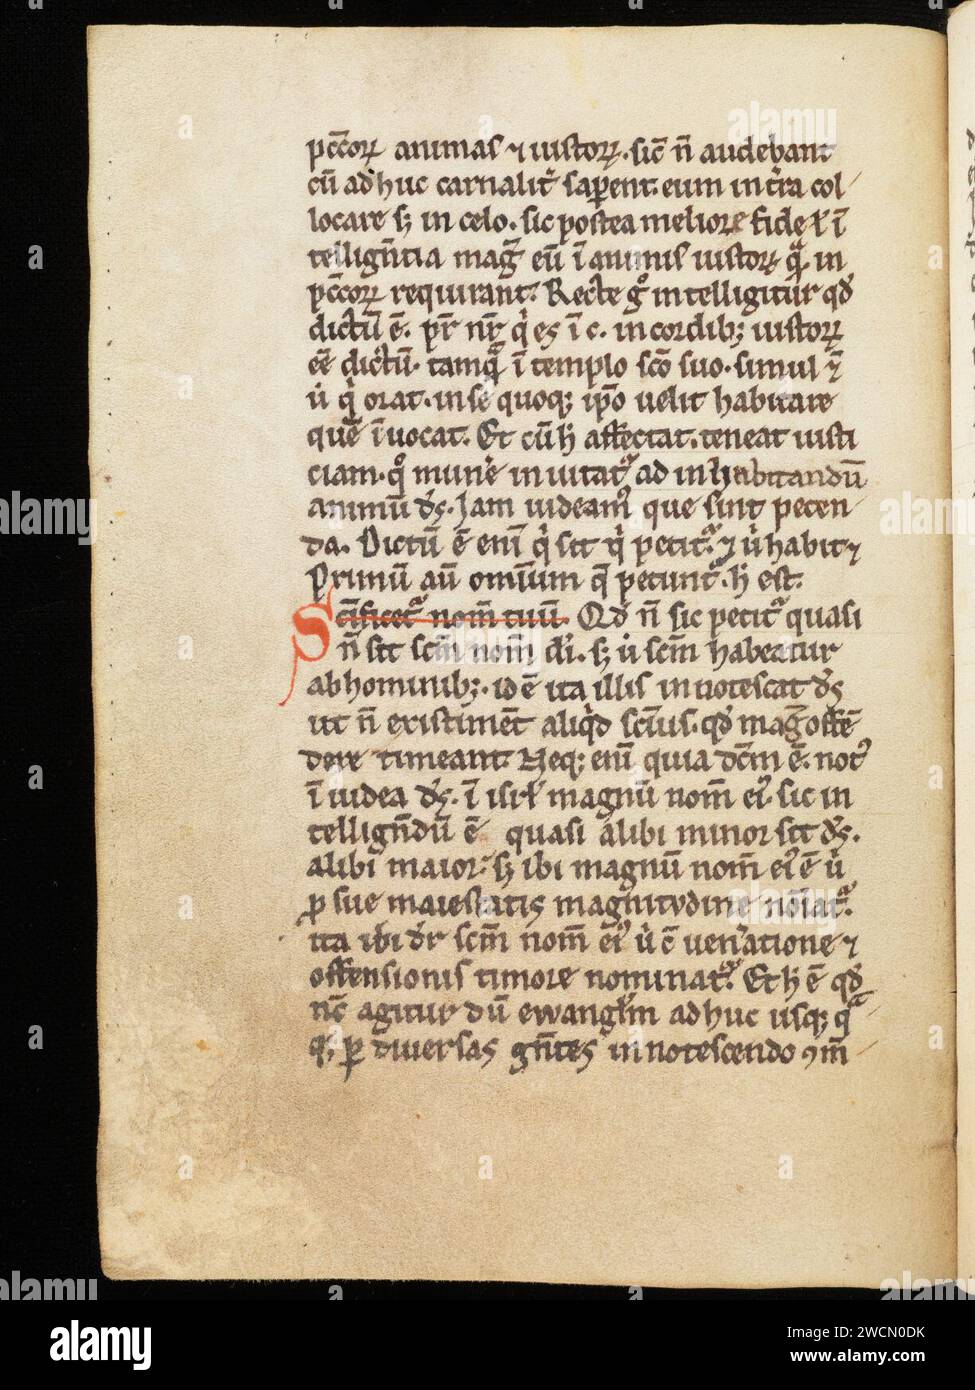 pccoꝝ animas ⁊ iustoꝝ. sic̄ n̄ audebant
cū adhuc carnalit̾ saꝑent. eum in t̾ra col
locare sꝫ in celo. sic postea meliore fide ł ī
tellignt̄ia mag̃ eū ī animis iustoꝝ q̃ in
pccoꝝ requirant. Recte gͦ intelligitur qđ
dictū ē. pr̄ nr̄ qⁱ es ī c. in cordibꝫ iustoꝝ
eē dictū. tamq̃ ī templo scō suo. simul ⁊
ut̾ qⁱ orat. in se quoqꝫ ip̄o uelit habitare
quē īuocat. Et cū h̄ affectat. teneat iusti
ciam. qͦ mun̾e inuitat᷑ ad inhabitandū
animū ds̄. Iam uideam᷒ que sunt peten
da. Dictū ē enī qⁱ sit qⁱ petit᷑. ⁊ uͥ habit⁊
Primū aū omnium q̄ petunt᷑ h̄ est.
Sc̄ificet᷑ nom̄ tuū. Qđ n̄ sic petit᷑ quasi
n̄ sit scm̄ nom̄ di̾. sꝫ ut̾ scm̄ habeatur
ab hominibꝫ. id ē ita illis innotescat ds̄
ut n̄ existiment̄ aliqⁱd scīus. qđ mag̃ offē
dere timeant. Neqꝫ enī quia dcm̄ ē. not᷒
ī iudea ds̄. ī isrł magnū nom̄ ei᷒. sic in
tellignd̄ū ē quasi alibi minor sit ds̄.
alibi maior. sꝫ ibi magnū nom̄ ei᷒ ē uͥ
ꝓ sue maiestatis magnitudine noīat᷑.
ita ibi dr̄ scm̄ nom̄ ei᷒ uͥ c̄ uen̾atione ⁊
offensionis timore nominat᷑. Et h̄ ē qđ
nc̄ agitur dū ewanglm̄ adhuc usqꝫ q̃
qꝫ ꝑ diuersas gnt̄es innotescendo ꝯm̄
alamy
Image ID: 2WCN0DK
www.alamy.com